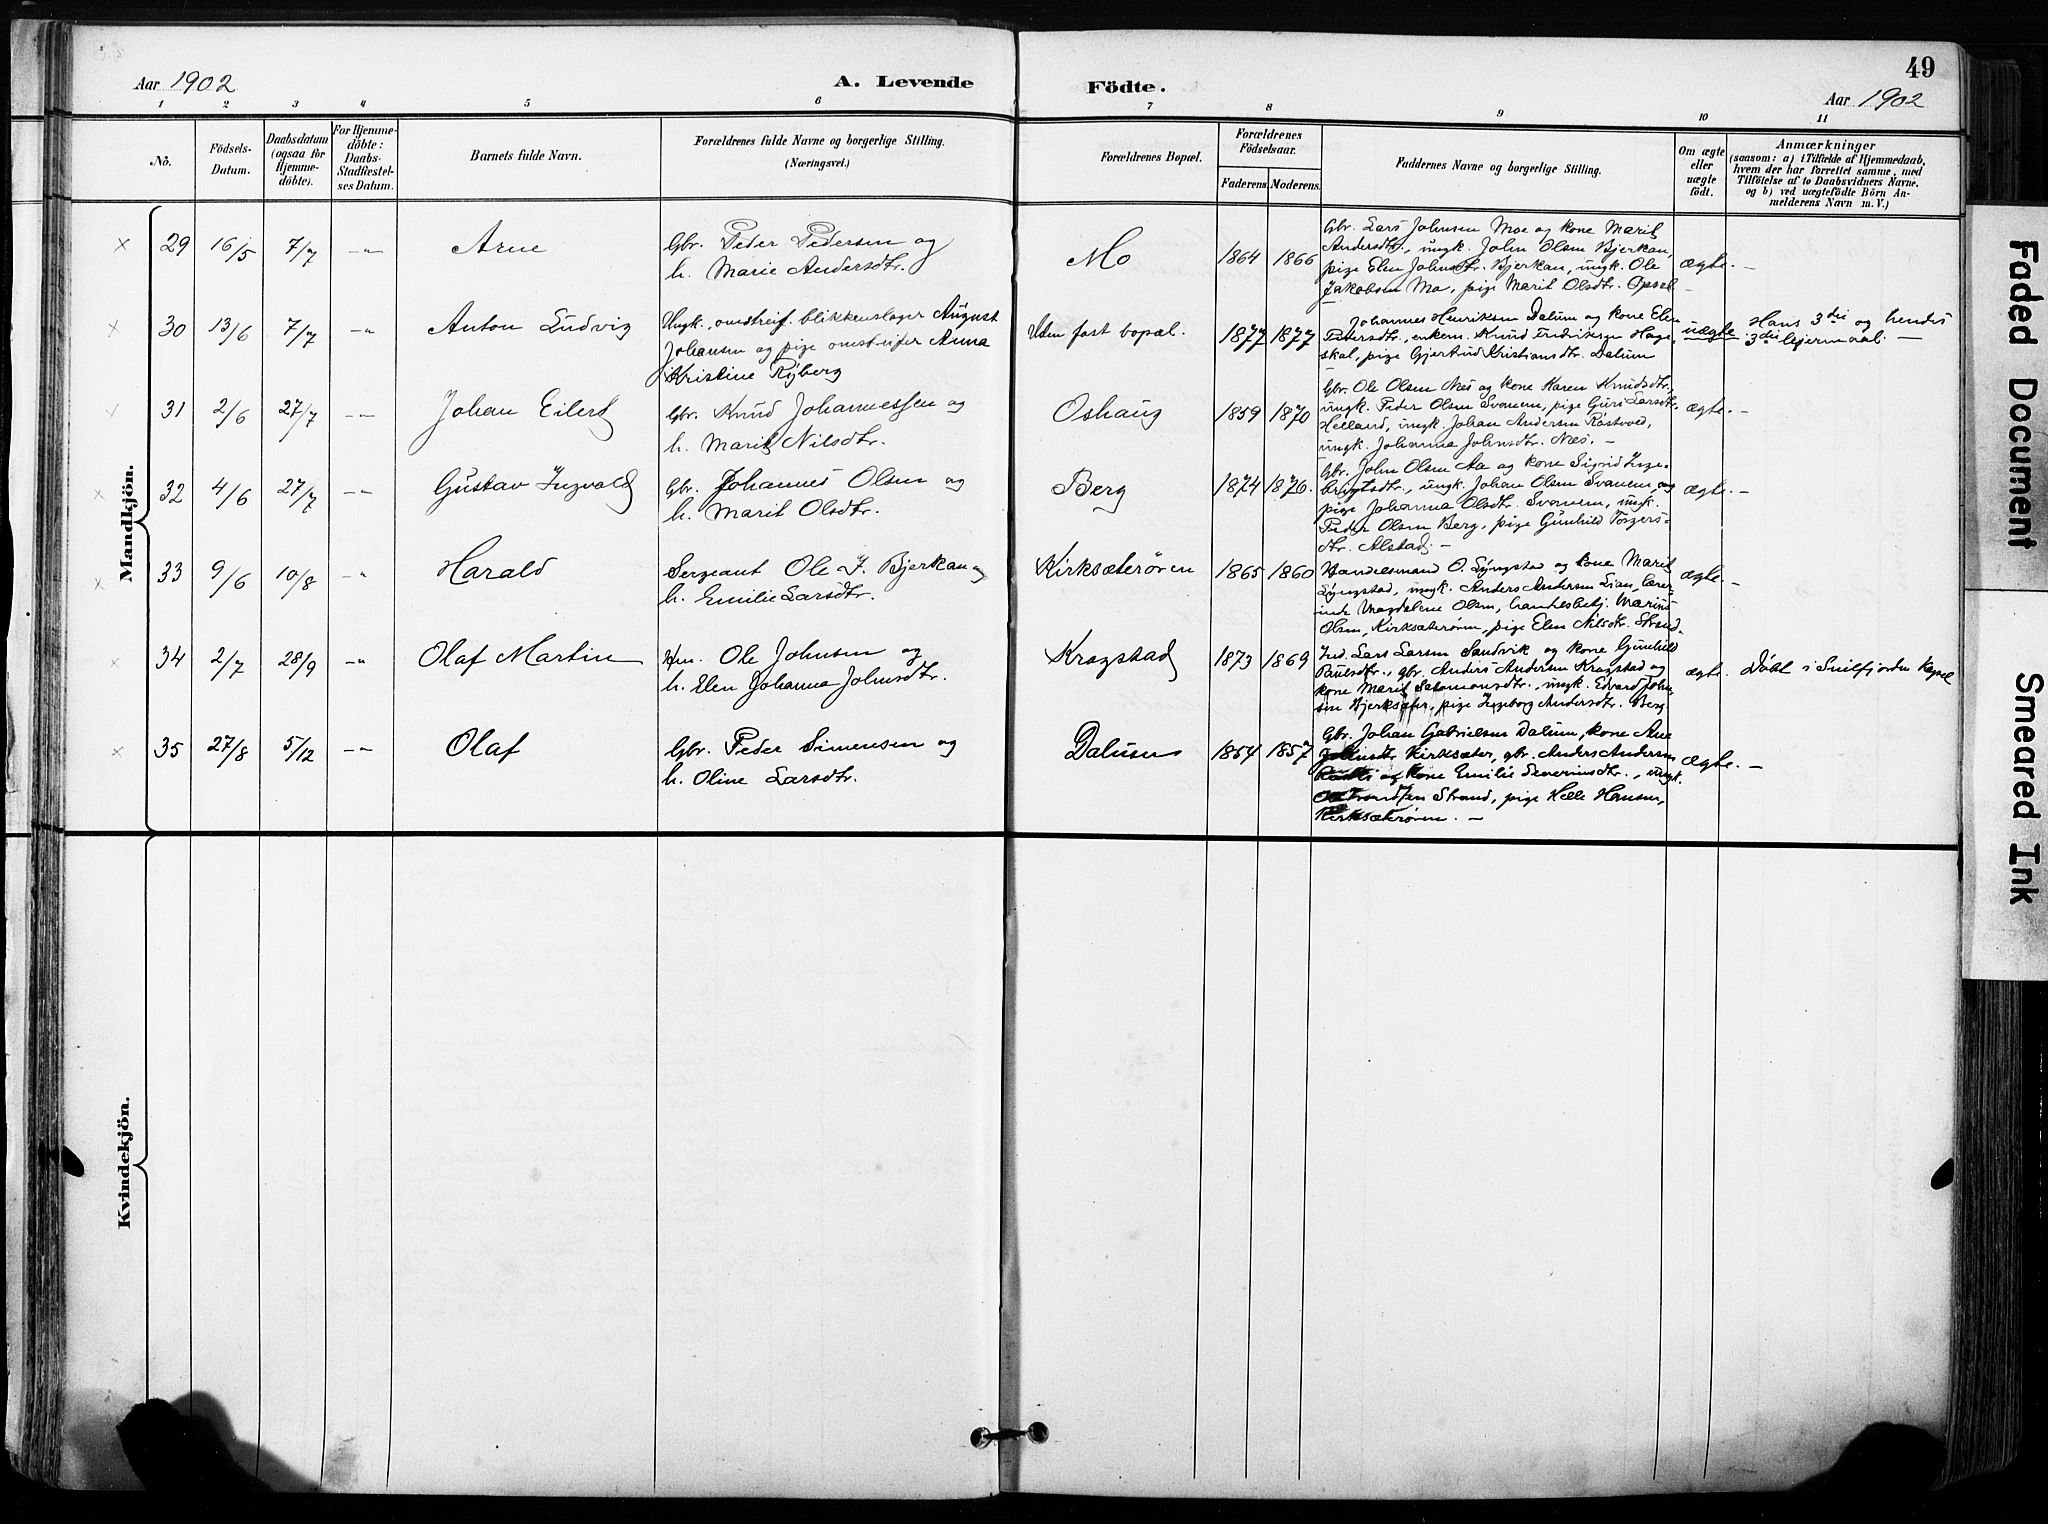 49
Aar 1902
A. Levende
Födte.
Aar 1902
1 2 3 4 5 6 7 8 9 10 11
No.
Födsels-Datum.
Daabsdatum (ogsaa for Hjemme-döbte).
For Hjemme-döbte: Daabs-Stadfæstel-ses Datum.
Barnets fulde Navn.
Forældrenes fulde Navne og borgerlige Stilling.
(Næringsvei.)
Forældrenes Bopæl.
Forældrenes Födselsaar.
Faderens. Moderens.
Faddernes Navne og borgerlige Stilling.
Om ægte eller uægte födt.
Anmærkninger
(saasom: a) i Tilfælde af Hjemmedaab,
hvem der har forrettet samme, med
Tilföielse af to Daabsvidners Navne.
og b) ved uægtefödte Börn An-
melderens Navn m. V.)
Mandkjön.
29 16/5 7/7 -"- Arne
Gbr. Peder Pedersen og
h. Marie Andersdtr.
Mo 1864 1866
Gbr. Lars Johnsen Moe og kone Marit
Andersdtr., ungk. John Olsen Bjerkan,
pige Elen Johnsdtr. Bjerkan, ungk. Ole
Jakobsen Mo, pige Marit Olsdtr. Opsal
ægte. -
30 13/6 7/7 -"- Anton Ludvig
Ungk., omstreif. blikkenslager August
Johansen og pige omstreifer Anna
Kristine Ryberg
Uden fast bopæl. 1877 1877
Johannes Henriksen Dalum og kone Elen
Petersdtr., enkem. Knud Fredriksen Hage-
skal, pige Gjertrud Kristiansdtr. Dalum
uægte
Hans 3die og hendes
3die leiermaal. -
31 2/6 27/7 -"- Johan Eilert
Gbr. Knud Johannessen og
h. Marit Nilsdtr.
Oshaug 1859 1870
Gbr. Ole Olsen Nes og kone Karen Knudsdtr.,
ungk. Peder Olsen Svanem, pige Guri Larsdtr.
Helland, ungk. Johan Andersen Røstvold,
ungk. Johanna Johnsdtr. Nes. -
ægte. -
32 4/6 27/7 -"- Gustav Ingvald
Gbr. Johannes Olsen og
h. Marit Olsdtr.
Berg 1874 1876.
Gbr. John Olsen Aa og kone Sigrid Inge-
brigtsdtr., ungk. Johan Olsen Svanem, og
pige Johanna Olsdtr. Svanem, ungk.
Peder Olsen Berg, pige Gunhild Torgers-
dtr. Alstad. -
ægte. -
33 9/6 10/8 -"- Harald
Sergeant Ole J. Bjerkan og
h. Emilie Larsdtr.
Kirksæterøren 1865 1860
Handelsmand O. Lyngstad og kone Marit
Lyngstad, ungk. Anders Andersen Lian, lærer-
inde Magdalene Olsen, handelsbetj. Marius
Olsen, Kirksæterøren, pige Elen Nilsdtr. Strand.
ægte. -
34 2/7 28/9 -"- Olaf Martin
Ole Johnsen og
h. Elen Johanna Johnsdtr.
Krogstad 1873 1869
Ind. Lars Larsen Sandvik og kone Gunhild
Paulsdtr., gbr. Anders Andersen Krogstad og
kone Marit Salomonsdtr., ungk. Edvard John-
sen Hjerksæter, pige Ingeborg Andersdtr. Berg
ægte.
Døbt i Snilfjorden Kapel
35 27/8 5/12 -"- Olaf
Gbr. Peder Simensen og
h. Oline Larsdtr.
Dalum 1854 1857
Gbr. Johan Gabrielsen Dalum, kone Ane
Kirksæter, gbr. Anders Andersen
og kone Emilie Severinsdtr., ungk.
Strand, pige Helle Hansen,
Kirksæterøren. -
ægte. -
Kvindekjön.
Faded Document
Smeared Ink